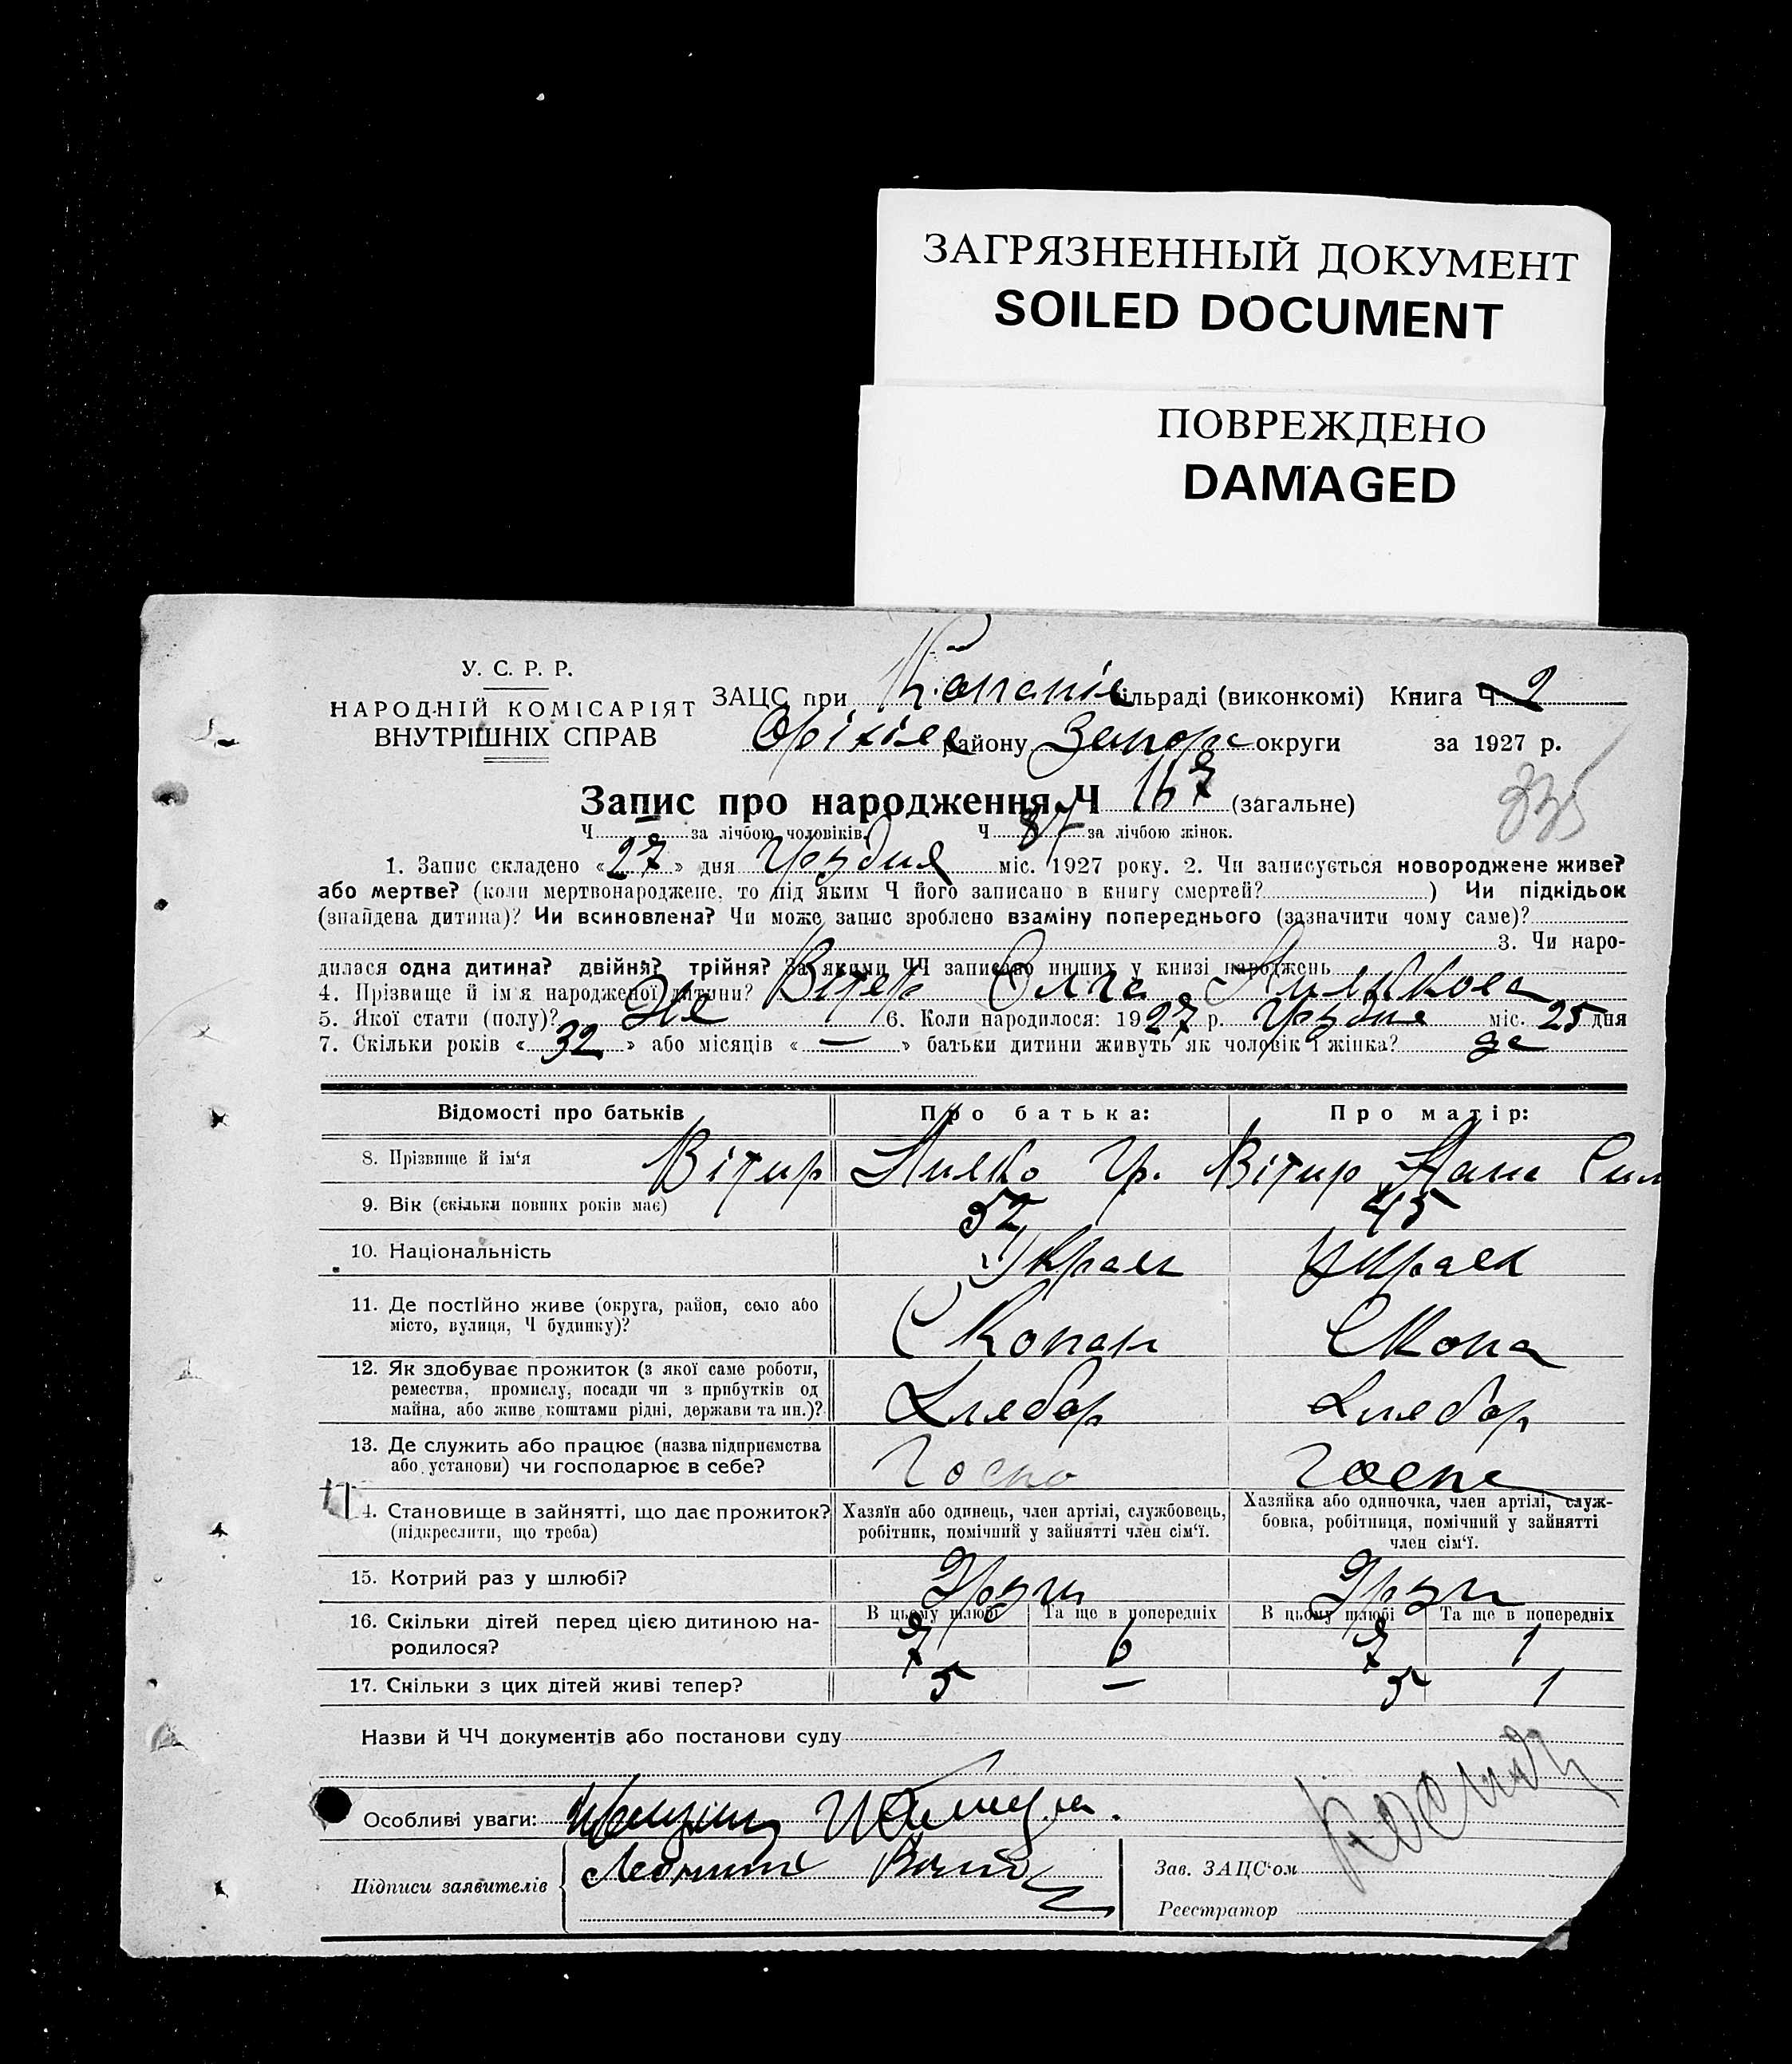 ЗАГРЯЗНЕННЫЙ ДОКУМЕНТ
SOILED DOCUMENT
ПОВРЕЖДЕНО
DAMAGED
У. С. Р. Р.
НАРОДНІЙ КОМІСАРІЯТ
ВНУТРІШНІХ СПРАВ
ЗАЦС при Копанів ільраді (виконкомі) Книга Ч 2
Оріхів району Запор округи за 1927 р.
335
Запис про народження Ч 167 (загальне)
Ч за лічбою чоловіків. Ч 87 за лічбою жінок.
1. Запис складено «27» дня Грудня міс. 1927 року. 2. Чи записується новороджене живе?
або мертве? (коли мертвонароджене, то під яким Ч його записано в книгу смертей? ) Чи підкідьок
(знайдена дитина)? Чи всиновлена? Чи може запис зроблено взаміну попереднього (зазначити чому саме)?
3. Чи наро-
дилася одна дитина? двійня? трійня? За якими ЧЧ записано инших у книзі народжень
4. Прізвище й ім'я народженої дитини? Вітер Олга
5. Якої стати (полу)? Же 6. Коли народилося: 1927 р. Грудня міс. 25 дня
7. Скільки років «32» або місяців «—» батьки дитини живуть як чоловік і жінка? да
Відомості про батьків Про батька: Про матір:
8. Прізвище й ім'я Вітир Гр. Вітир
9. Вік (скільки повних років має) 52 45
10. Національність Украен Украен
11. Де постійно живе (округа, район, село або
місто, вулиця, Ч будинку)? С Копан С Копа
12. Як здобуває прожиток (з якої саме роботи,
ремества, промислу, посади чи з прибутків од
майна, або живе коштами рідні, держави та ин.)? Хлебор Хлебор
13. Де служить або працює (назва підприємства
або установи) чи господарює в себе? Госпо Госпо
14. Становище в зайнятті, що дає прожиток?
(підкреслити, що треба)
Хазяїн або одинець, член артілі, службовець,
робітник, помічний у зайнятті член сім'ї.
Хазяйка або одиночка, член артілі, служ-
бовка, робітниця, помічний у зайнятті
член сім'ї.
15. Котрий раз у шлюбі? Други Други
В цьому шлюбі Та ще в попередніх В цьому шлюбі Та ще в попередніх
16. Скільки дітей перед цією дитиною на-
родилося? 7 6 7 1
17. Скільки з цих дітей живі тепер? 5 — 5 1
Назви й ЧЧ документів або постанови суду
Особливі уваги:
Підписи заявителів
Зав. ЗАЦС'ом
Реєстратор